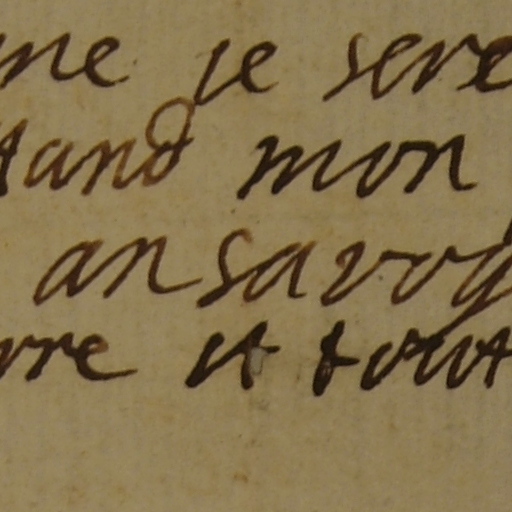 me je sere
tand mon
an savoy
rre et tout